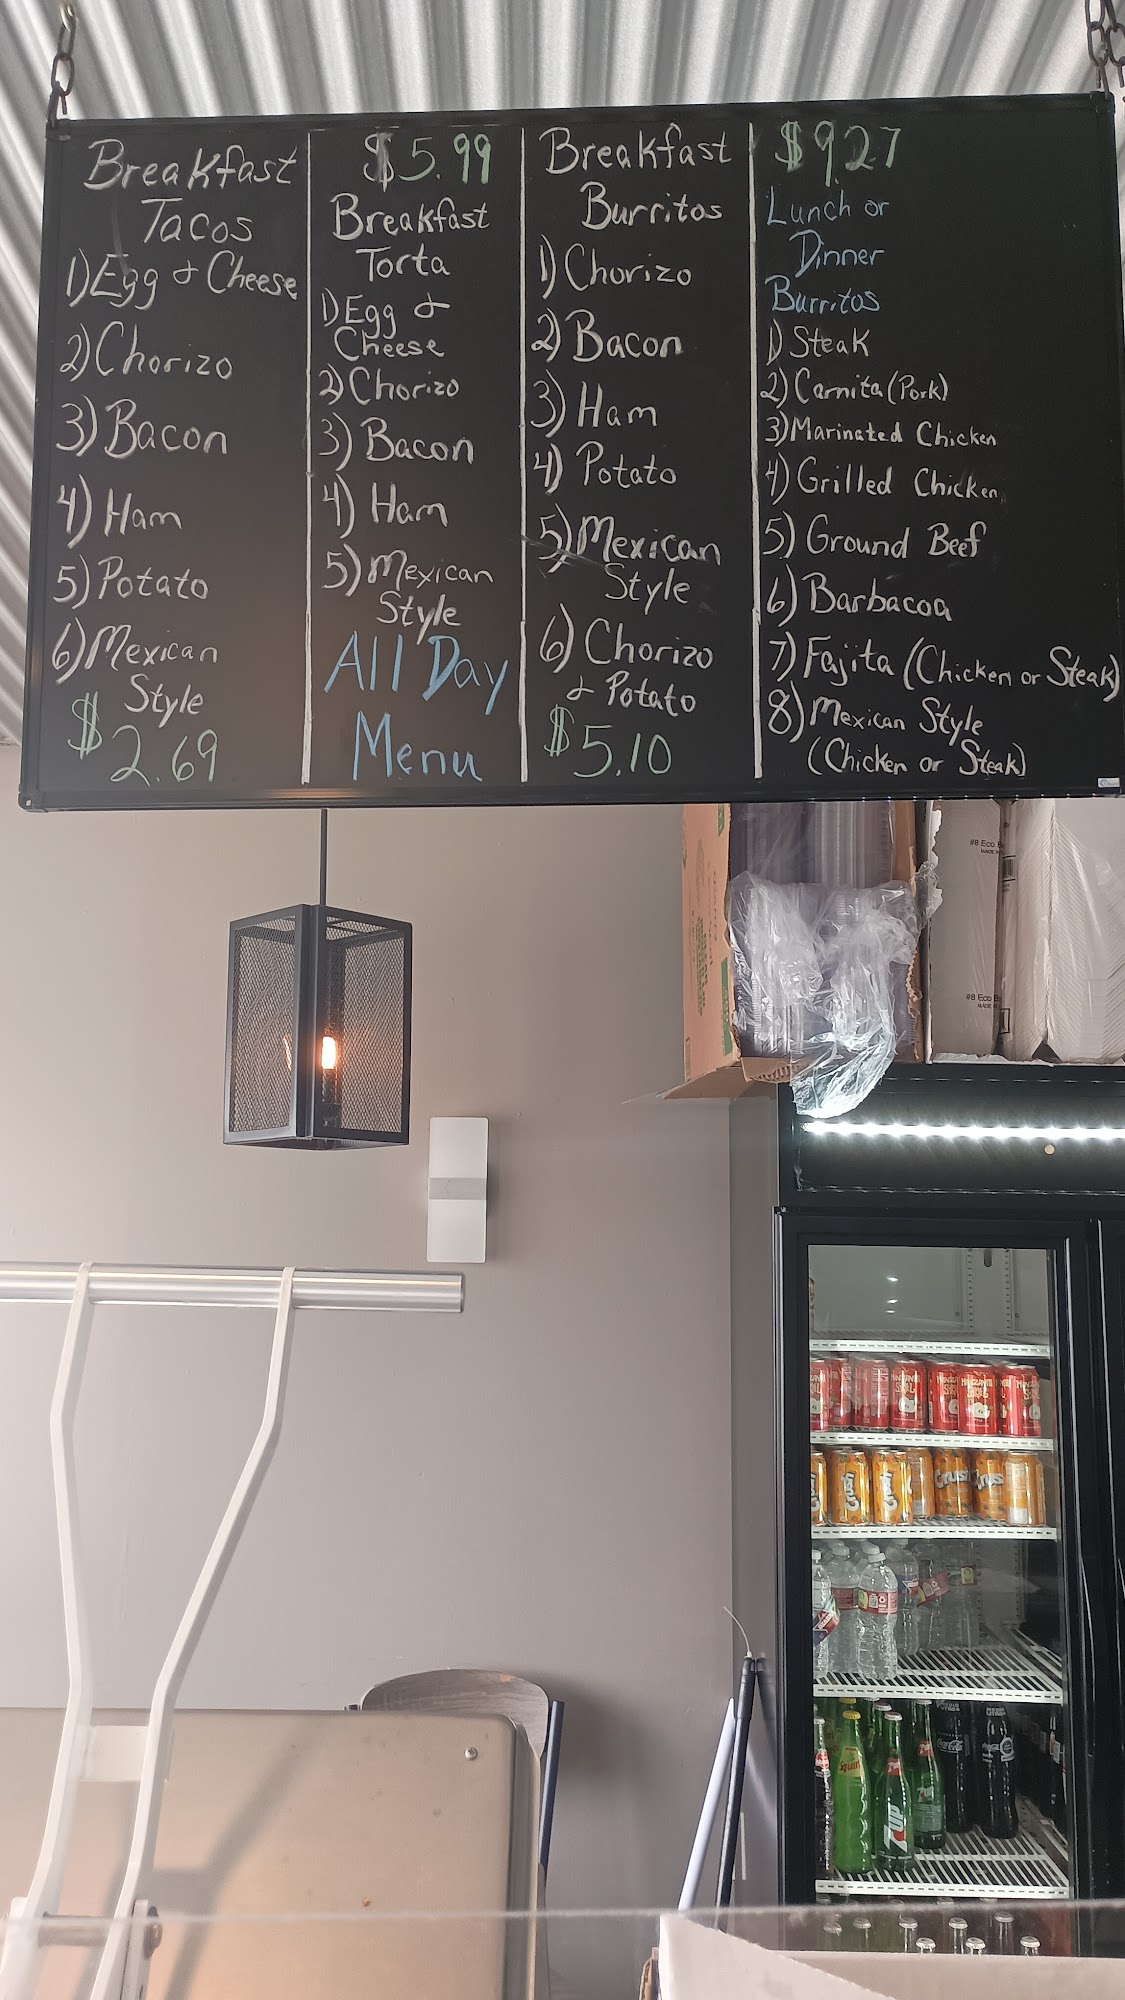 Breakfast
Tacos
1) Egg & Cheese
2) Chorizo
3) Bacon
4) Ham
5) Potato
6) Mexican
Style
$2.69
$5.99
Breakfast
Torta
1) Egg &
Cheese
2) Chorizo
3) Bacon
4) Ham
5) Mexican
Style
All Day
Menu
Breakfast
Burritos
1) Chorizo
2) Bacon
3) Ham
4) Potato
5) Mexican
Style
6) Chorizo
& Potato
$5.10
$9.27
Lunch or
Dinner
Burritos
1) Steak
2) Carnita (Pork)
3) Marinated Chicken
4) Grilled Chicken
5) Ground Beef
6) Barbacoa
7) Fajita (Chicken or Steak)
8) Mexican Style
(Chicken or Steak)
#8 Eco
#8 Eco
Crush
7UP
Coca-Cola